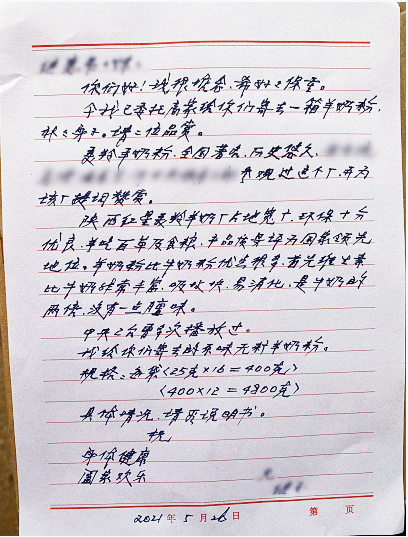 你们好！我很想念，希好好保重。
今我已委托高荣给你们寄去一箱羊奶粉，
补补身子。请二位品赏。
美羚羊奶粉，全国著名，历史悠久，
参观过这个厂，并为
该厂题词赞赏。
陕西红星美羚羊奶厂占地宽广，环保十分
优良，羊吃百草及食粮，产品质量评为国家领先
地位。羊奶粉比牛奶粉优点很多，首先维生素
比牛奶粉丰富，吸收快，易消化，是牛奶的
两倍，没有一点膻味。
中央2台曾多次播放过。
我给你们寄去的原味无糖羊奶粉。
规格：每袋（25克×16＝400克）
（400×12＝4800克）
具体情况，请页说明书。
祝
身体健康
阖家欢乐
2021年5月26日
第 页